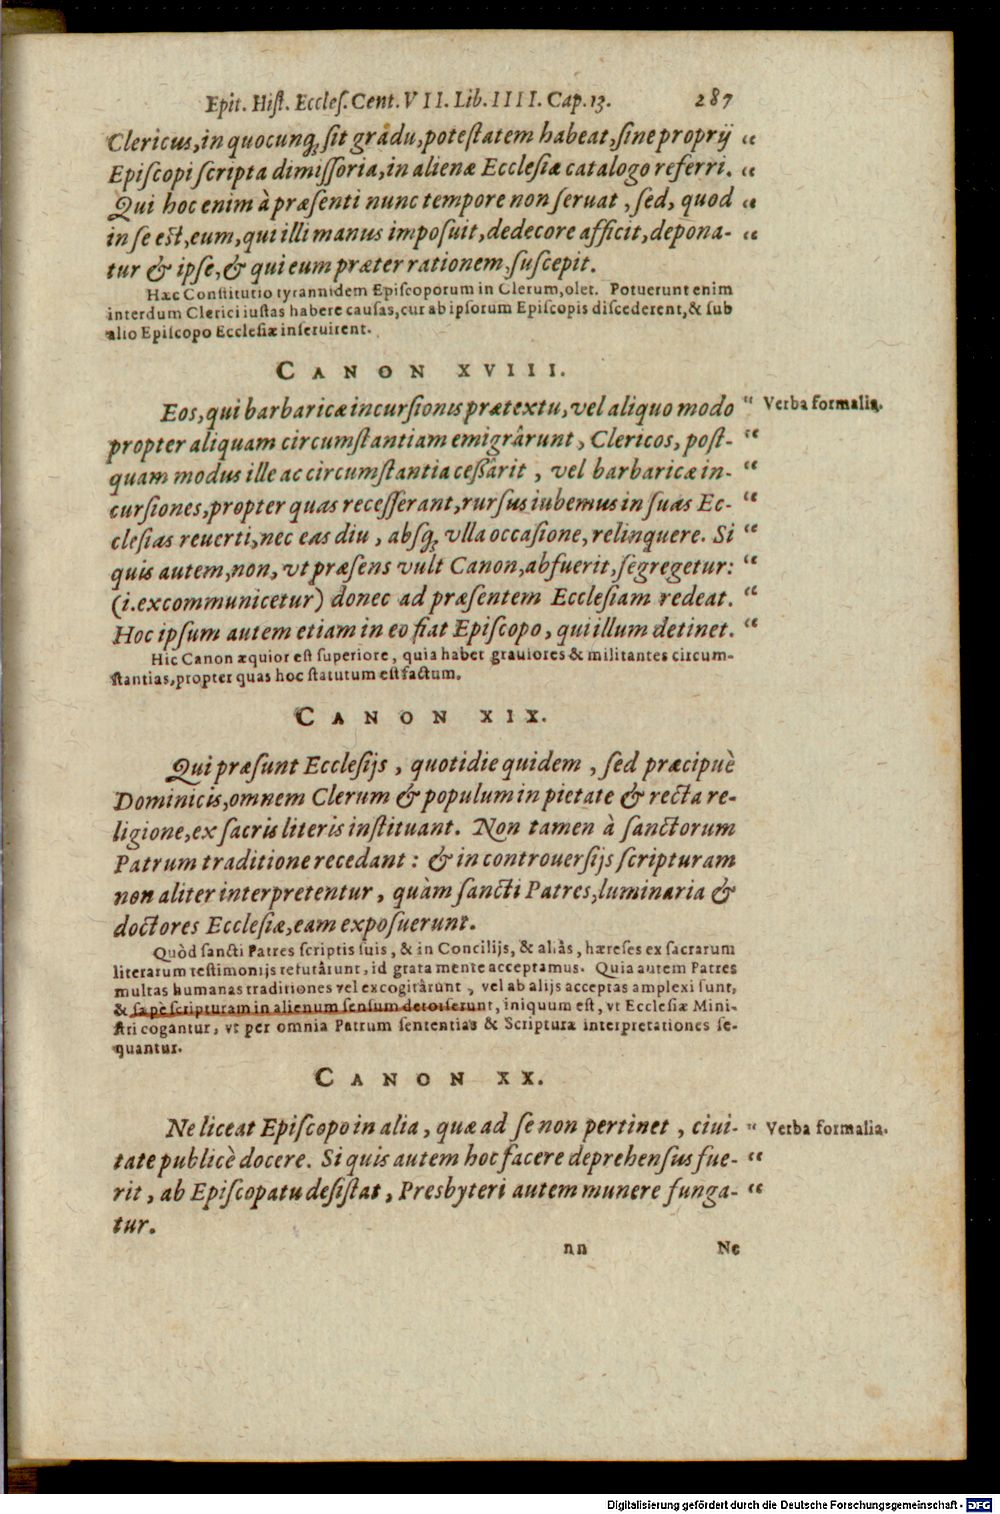 Epit. Hiſt. Eccleſ. Cent. VII. Lib. IIII. Cap. 13. 287
Clericus, in quocunq; ſit gradu, poteſtatem habeat, ſine proprij “
Epiſcopi ſcripta dimiſſoria, in alienæ Eccleſiæ catalogo referri. “
Qui hoc enim à præſenti nunc tempore non ſeruat, ſed, quod “
in ſe eſt, eum, qui illi manus impoſuit, dedecore afficit, depona- “
tur & ipſe, & qui eum præter rationem, ſuſcepit.
Hæc Conſtitutio tyrannidem Epiſcoporum in Clerum, olet. Potuerunt enim
interdum Clerici iuſtas habere cauſas, cur ab ipſorum Epiſcopis diſcederent, & ſub
alio Epiſcopo Eccleſiæ inſeruirent.
CANON XVIII.
Eos, qui barbaricæ incurſionis prætextu, vel aliquo modo “ Verba formalia.
propter aliquam circumſtantiam emigrârunt, Clericos, poſt- “
quam modus ille ac circumſtantia ceſſârit, vel barbaricæ in- “
curſiones, propter quas receſſerant, rurſus iubemus in ſuas Ec- “
cleſias reuerti, nec eas diu, abſq; vlla occaſione, relinquere. Si “
quis autem, non, vt præſens vult Canon, abfuerit, ſegregetur: “
(i. excommunicetur) donec ad præſentem Eccleſiam redeat. “
Hoc ipſum autem etiam in eo fiat Epiſcopo, qui illum detinet. “
Hic Canon æquior eſt ſuperiore, quia habet grauiores & militantes circum-
ſtantias, propter quas hoc ſtatutum eſt factum.
CANON XIX.
Qui præſunt Eccleſijs, quotidie quidem, ſed præcipuè
Dominicis, omnem Clerum & populum in pietate & recta re-
ligione, ex ſacris literis inſtituant. Non tamen à ſanctorum
Patrum traditione recedant: & in controuerſijs ſcripturam
non aliter interpretentur, quàm ſancti Patres, luminaria &
doctores Eccleſiæ, eam expoſuerunt.
Quòd ſancti Patres ſcriptis ſuis, & in Concilijs, & aliàs, hæreſes ex ſacrarum
literarum teſtimonijs refutârunt, id grata mente acceptamus. Quia autem Patres
multas humanas traditiones vel excogitârunt, vel ab alijs acceptas amplexi ſunt,
& ſæpè ſcripturam in alienum ſenſum detorſerunt, iniquum eſt, vt Eccleſiæ Mini-
ſtri cogantur, vt per omnia Patrum ſententias & Scripturæ interpretationes ſe-
quantur.
CANON XX.
Ne liceat Epiſcopo in alia, quæ ad ſe non pertinet, ciui- “ Verba formalia.
tate publicè docere. Si quis autem hoc facere deprehenſus fue- “
rit, ab Epiſcopatu deſiſtat, Presbyteri autem munere funga- “
tur.
nn Ne
Digitalisierung gefördert durch die Deutsche Forschungsgemeinschaft - DFG